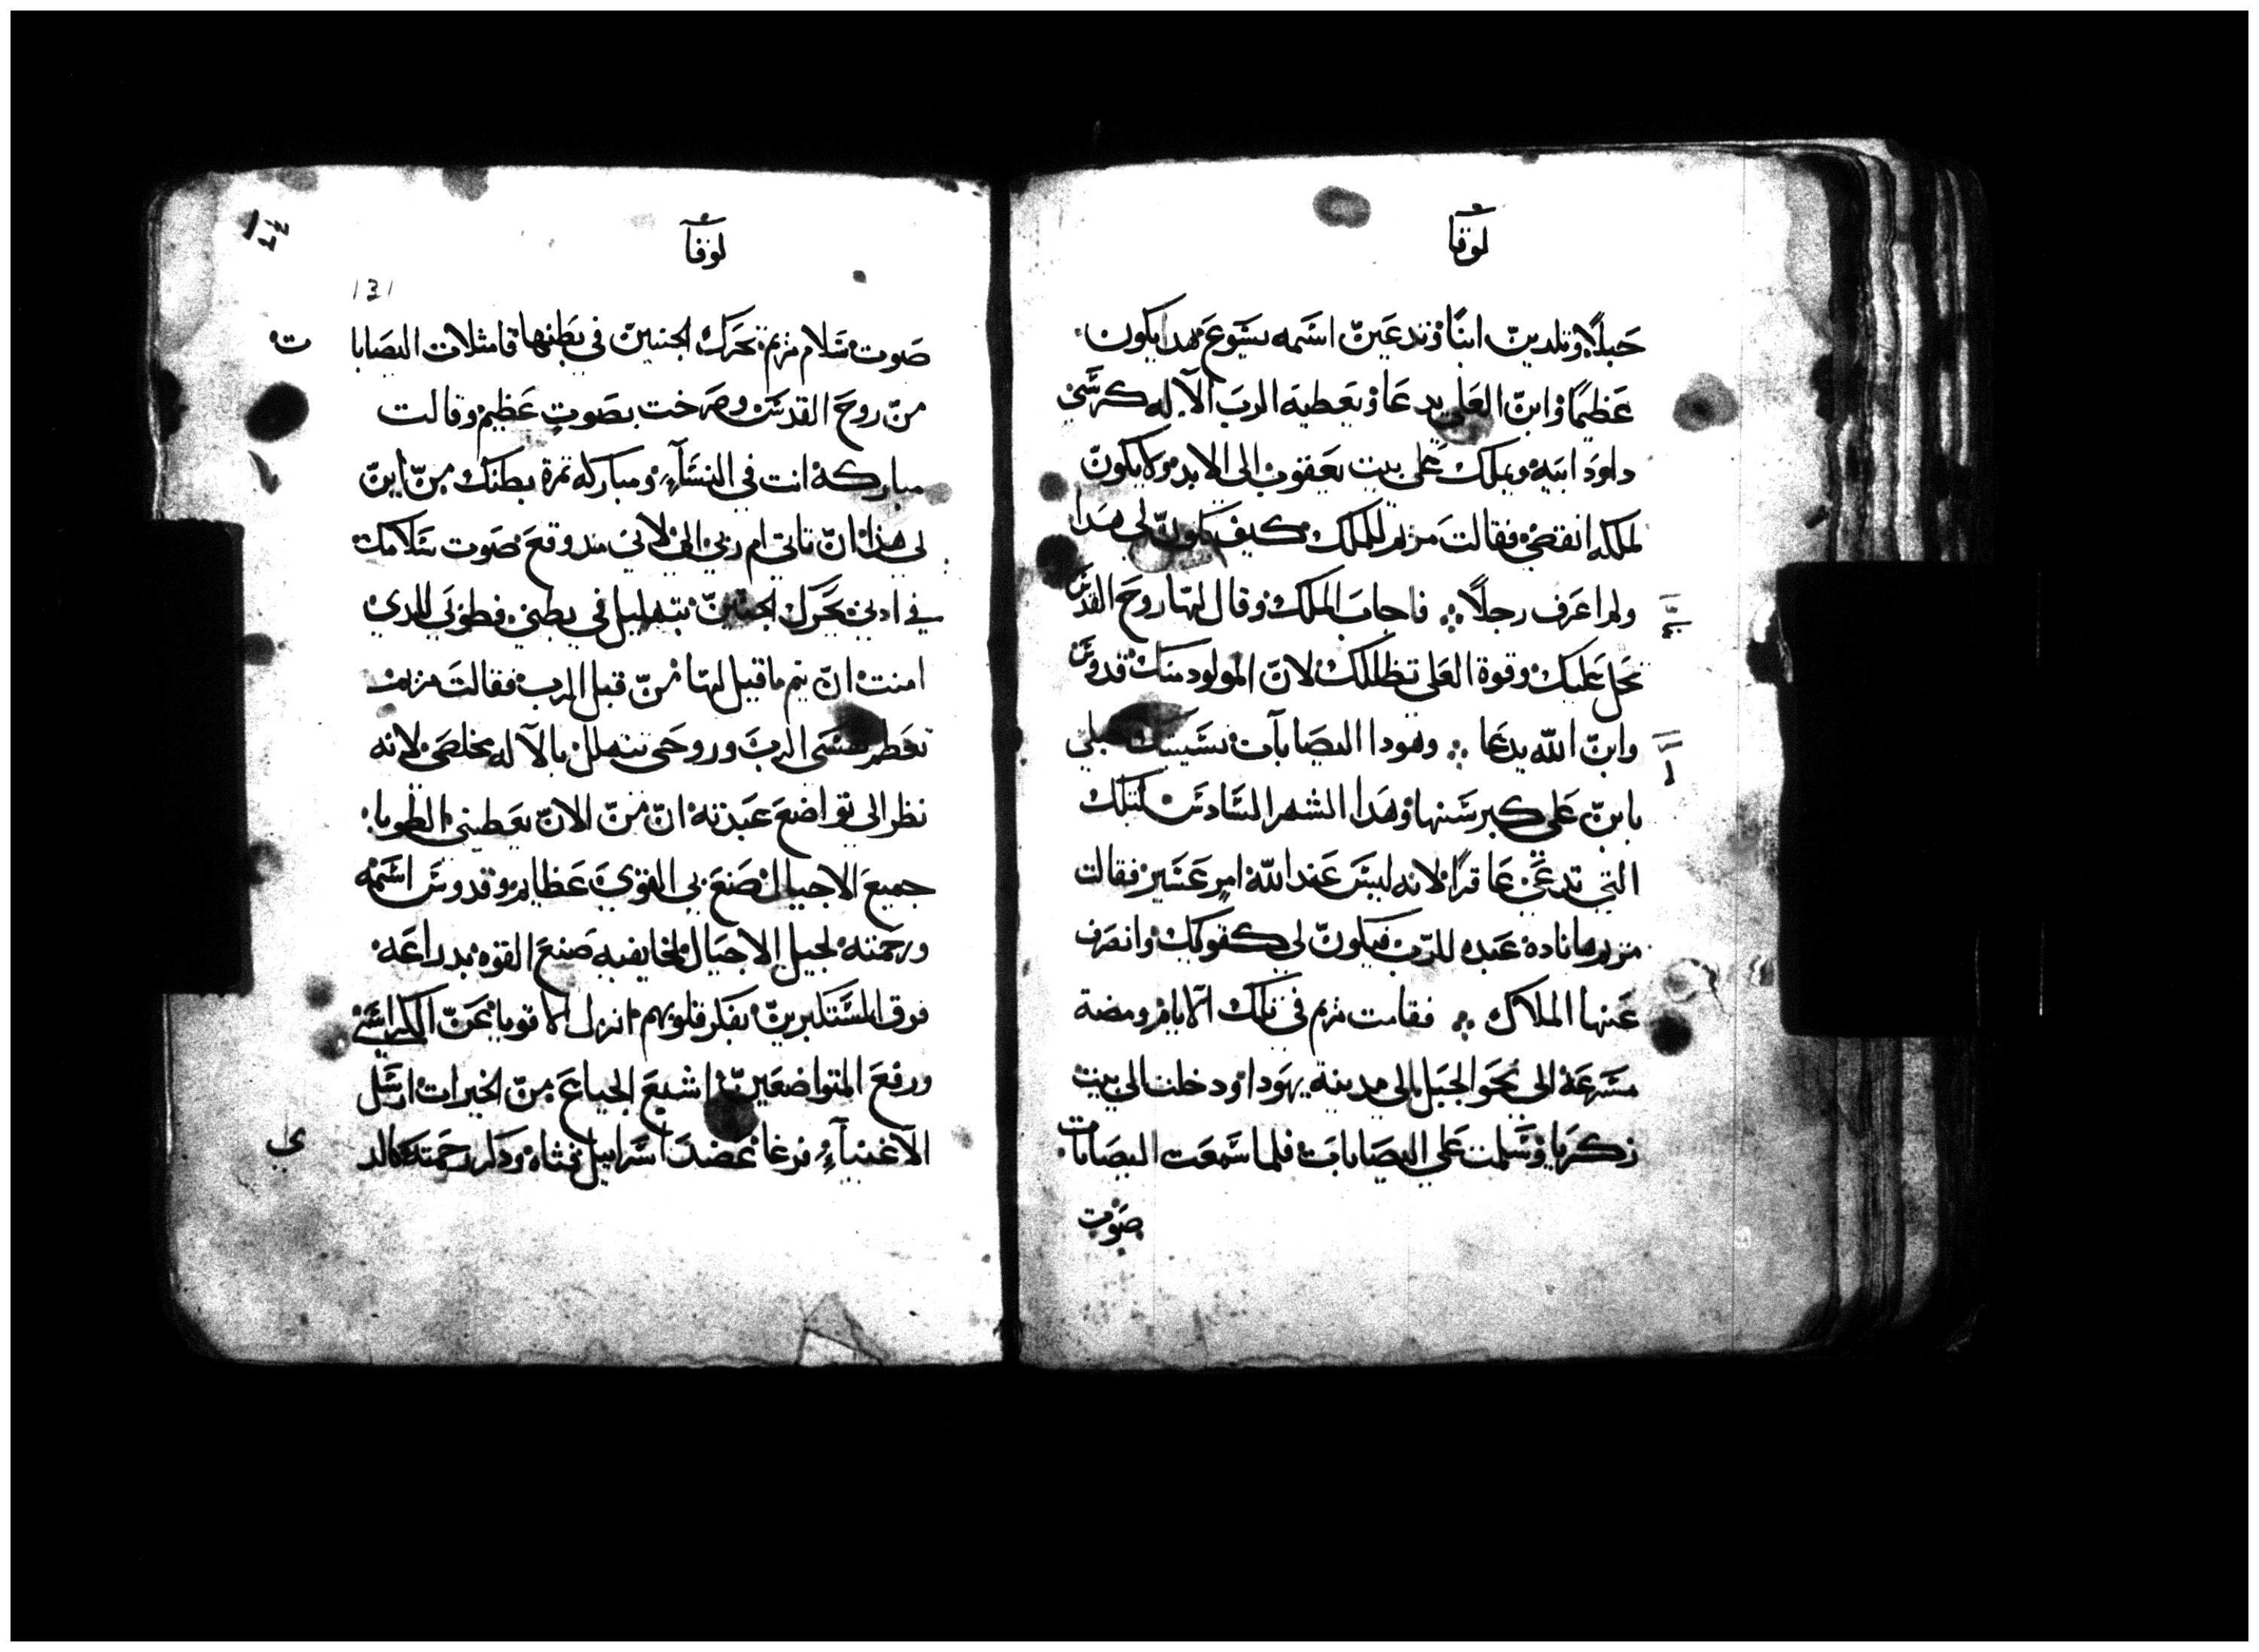 لوقا
حبلاً وتلدين ابناً وتدعين اسمه يسوع هدا يكون
عظيماً وابن العلي يدعا ويعطيه الرب الاله كرسي
داود ابيه ويملك على بيت يعقوب الى الابد ولا يكون
لملكه انقضي فقالت مريم للملاك كيف يكون لي هدا
ولم اعرف رجلاً ⁘ فاجاب الملاك وقال لها روح القدس
تحل عليك وقوة العلي تظللك لان المولود منك قدوس
وابن الله يدعا ⁘ وهودا اليصابات نسيبتك حبلي
بابن على كبر سنها وهدا الشهر السادس لتلك
التي تدعي عاقراً لانه ليس عند الله امر عسير فقالت
مريم هانادة عبده للرب فيكون لي كقولك وانصرف
عنها الملاك ⁘ فقامت مريم في تلك الايام ومضة
مسرعة الى نحو الجبل الى مدينة يهودا ودخلت الى بيت
زكريا وسلمت على اليصابات فلما سمعت اليصابات
صوت
لوقا
131
صوت سلام مريم تحرك الجنين في بطنها فامتلات اليصابا
ت
من روح القدس وصرخت بصوت عظيم وقالت
مباركه انت في النسآء ومباركه ثمرة بطنك من اين
لي هذا ان تاتي ام ربي الي لاني مند وقع صوت سلامك
في ادني تحرك الجنين بتهليل في بطني فطوبي للدي
امنت ان يتم ما قيل لها من قبل الرب فقالت مريم
تعظم نفسي الرب وروحي تتهلل بالاله مخلصي لانه
نظر الى تواضع عبدته ان من الان يعطيني الطوبا
جميع الاجيال صنع بي القوي عظايم وقدوس اسمه
ورحمته لجيل الاجيال لخايفيه صنع القوه بدراعه
فرق المستكبرين بفكر قلوبهم انزل الاقويا عن الكراسي
ورفع المتواضعين اشبع الجياع من الخيرات ارسل
الاغنيآء فرغا عضد اسراييل فتاه ودكر رحمته كالد
ي